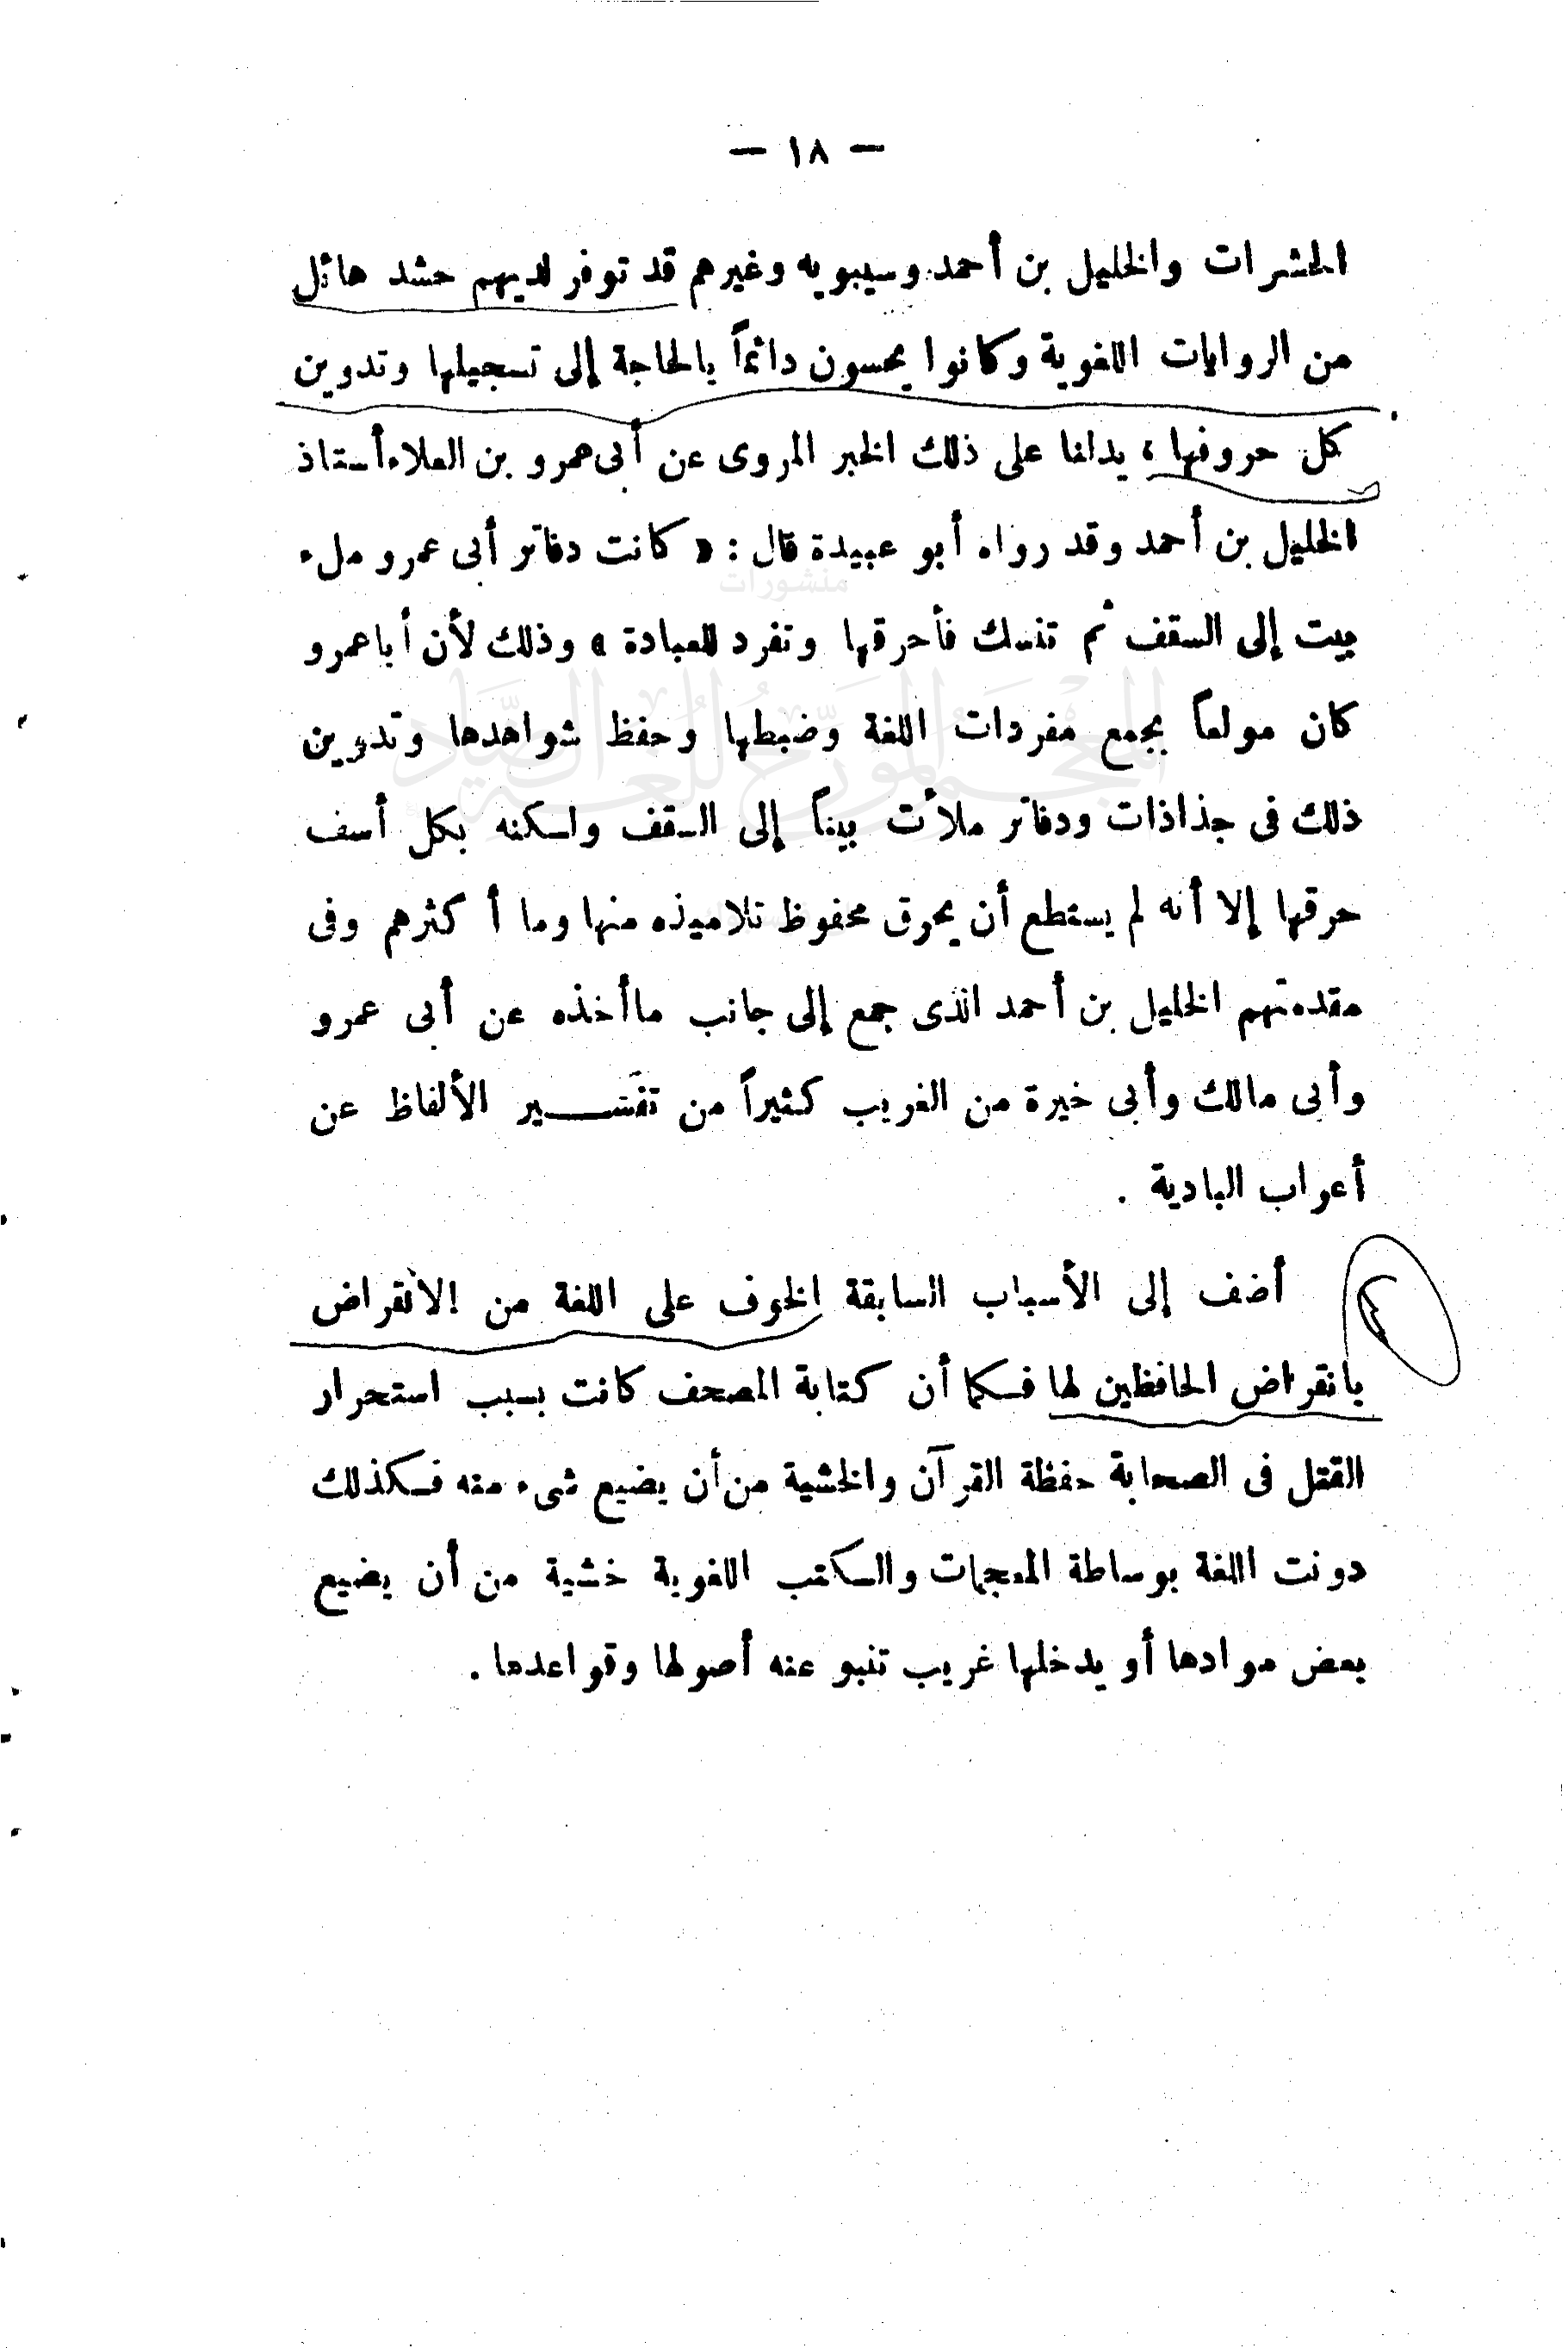 — ١٨ —
الحشرات والخليل بن أحمد وسيبويه وغيرهم قد توفر لديهم حشد هائل
من الروايات اللغوية وكانوا يحسون دائماً بالحاجة إلى تسجيلها وتدوين
كل حروفها ، يدلنا على ذلك الخبر المروى عن أبى عمرو بن العلاء أستاذ
الخليل بن أحمد وقد رواه أبو عبيدة قال : « كانت دفاتر أبى عمرو ملء
بيت إلى السقف ثم تنسك فأحرقها وتفرد للعبادة » وذلك لأن أبا عمرو
كان مولعاً بجمع مفردات اللغة وضبطها وحفظ شواهدها وتدوين
ذلك فى جذاذات ودفاتر ملأت بيتاً إلى السقف ولكنه بكل أسف
حرقها إلا أنه لم يستطع أن يحرق محفوظ تلاميذه منها وما أكثرهم وفى
مقدمتهم الخليل بن أحمد الذى جمع إلى جانب ما أخذه عن أبى عمرو
وأبى مالك وأبى خيرة من الغريب كثيراً من تفســـير الألفاظ عن
أعراب البادية .
أضف إلى الأسباب السابقة الخوف على اللغة من الانقراض
بانقراض الحافظين لها فكما أن كتابة المصحف كانت بسبب استحرار
القتل فى الصحابة حفظة القرآن والخشية من أن يضيع شىء منه فكذلك
دونت اللغة بوساطة المعجمات والكتب اللغوية خشية من أن يضيع
بعض موادها أو يدخلها غريب تنبو عنه أصولها وقواعدها .
منشورات
المعجم المؤرخ للغة الضاد